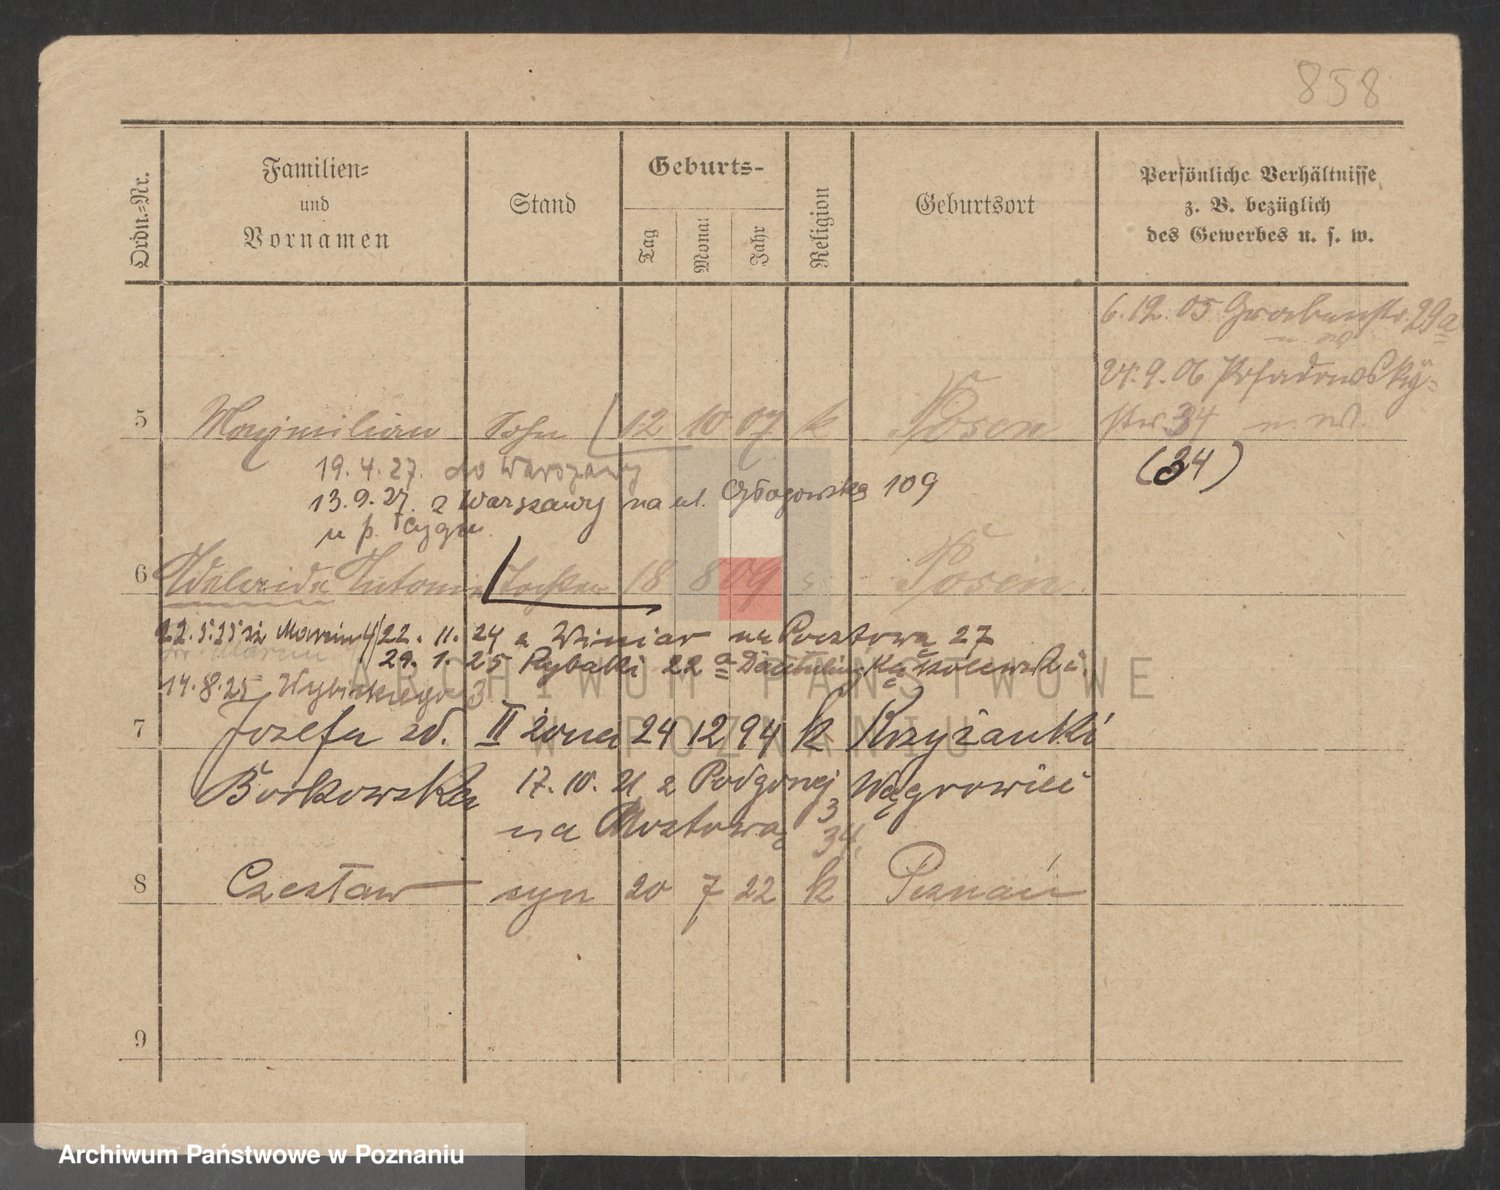 858
Ordn.-Nr.
Familien-
und
Vornamen
Stand
Geburts-
Tag
Monat
Jahr
Religion
Geburtsort
Persönliche Verhältnisse
z. B. bezüglich
des Gewerbes u. s. w.
6.12.05 Grabenstr. 29a
24.9.06 Posadowsky-
str. 34
5 Maximilian Sohn 12 10 07 k Posen
(34)
19.4.27. do Warszawy
13.9.27. z Warszawy na ul. Głogowska 109
u p.
6 Adelaida Antonie Tochter 18 8 09 Posen
22.11.24 z Winiar na Pocztową 27
29.1.25 Rybaki 22a
14.8.25 Wybickiego 3
7 Józefa zd. II żona 24 12 94 k Krzyżanki
Borkowska 17.10.21 z Podgórnej Wągrowiec
3
na Mostową
34.
8 Czesław syn 20 7 22 k Poznań
9
ARCHIWUM PAŃSTWOWE
W POZNANIU
Archiwum Państwowe w Poznaniu